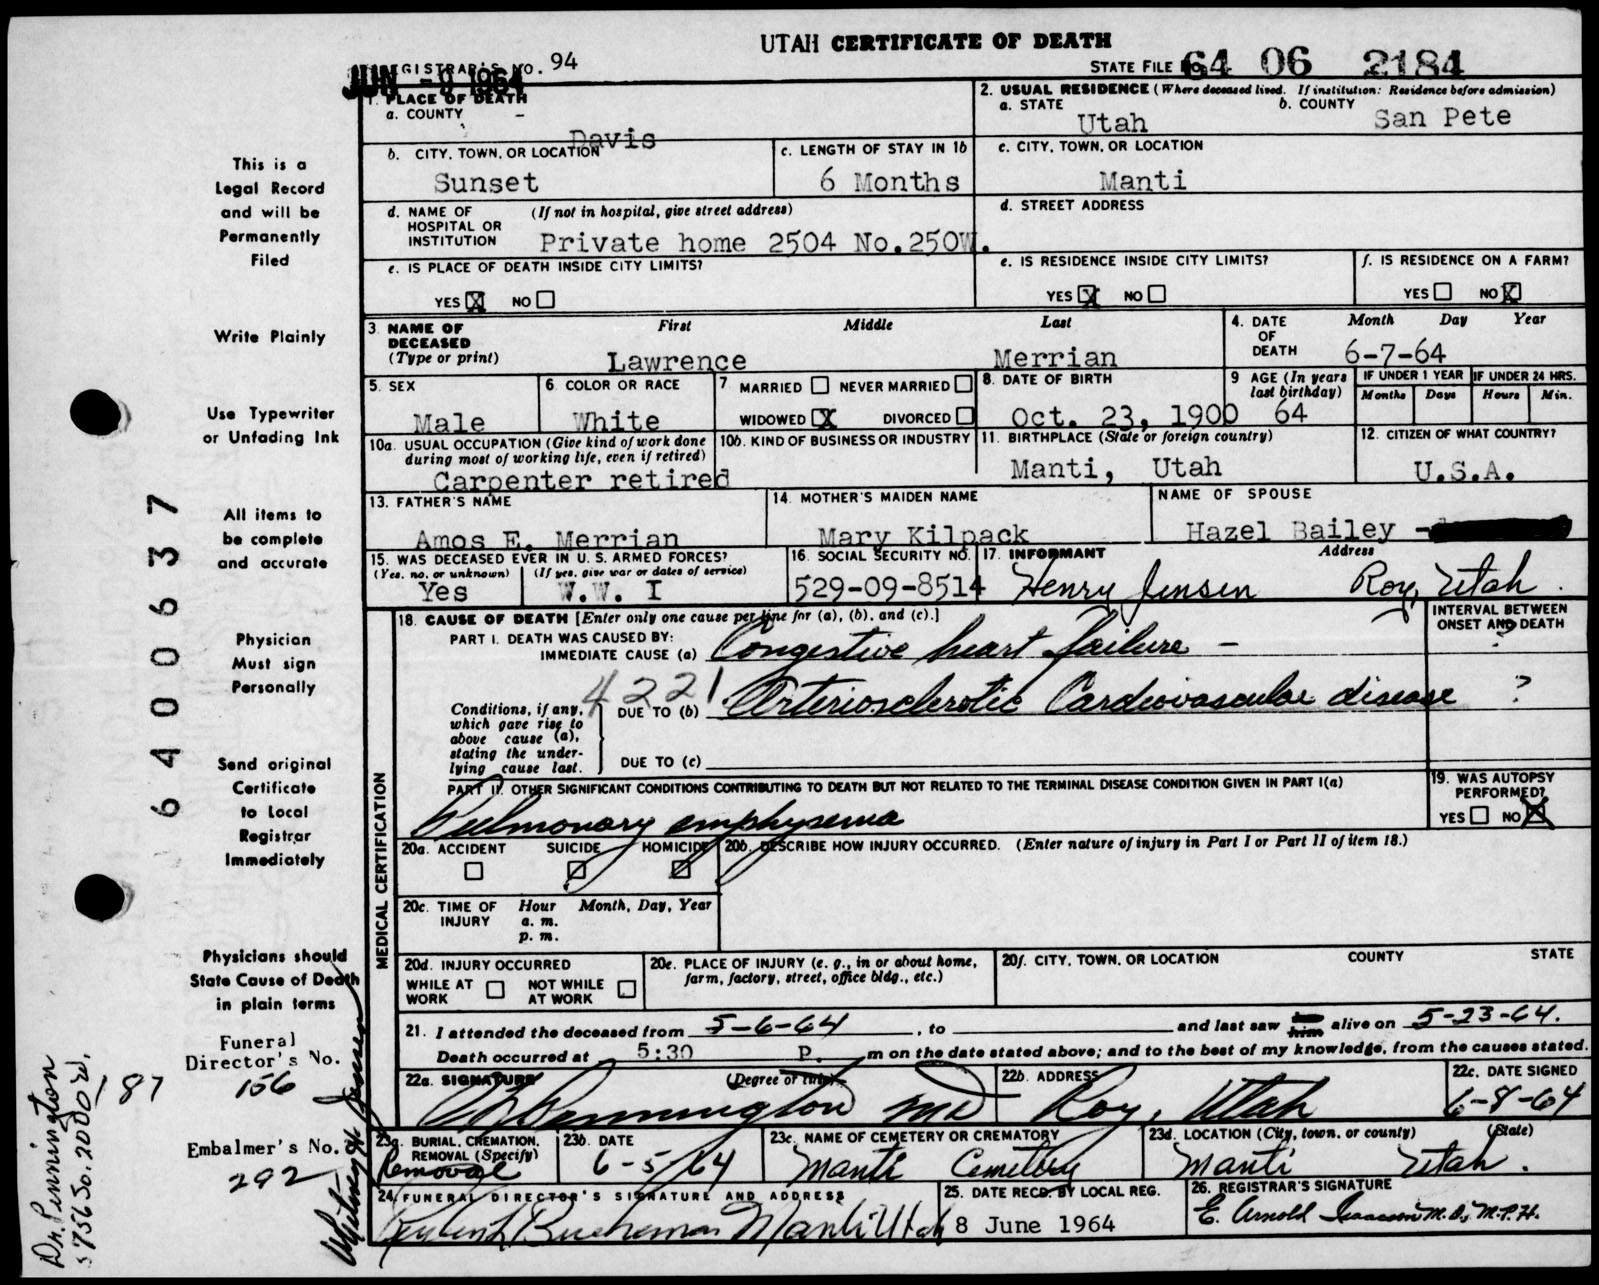 UTAH CERTIFICATE OF DEATH
REGISTRAR'S NO. 94
STATE FILE No. 64 06 2184
JUN -9 1964
1. PLACE OF DEATH
a. COUNTY
Davis
2. USUAL RESIDENCE (Where deceased lived. If institution: Residence before admission)
a. STATE Utah b. COUNTY San Pete
b. CITY, TOWN, OR LOCATION
Sunset
c. LENGTH OF STAY IN 1b
6 Months
c. CITY, TOWN, OR LOCATION
Manti
d. NAME OF HOSPITAL OR INSTITUTION (If not in hospital, give street address)
Private home 2504 No.250W.
d. STREET ADDRESS
e. IS PLACE OF DEATH INSIDE CITY LIMITS?
YES X NO
e. IS RESIDENCE INSIDE CITY LIMITS?
YES X NO
f. IS RESIDENCE ON A FARM?
YES NO X
3. NAME OF DECEASED (Type or print) First Middle Last
Lawrence Merrian
4. DATE OF DEATH Month Day Year
6-7-64
5. SEX
Male
6. COLOR OR RACE
White
7 MARRIED NEVER MARRIED
WIDOWED X DIVORCED
8. DATE OF BIRTH
Oct. 23, 1900
9 AGE (In years last birthday)
64
IF UNDER 1 YEAR
Months Days
IF UNDER 24 HRS.
Hours Min.
10a. USUAL OCCUPATION (Give kind of work done during most of working life, even if retired)
Carpenter retired
10b. KIND OF BUSINESS OR INDUSTRY
11. BIRTHPLACE (State or foreign country)
Manti, Utah
12. CITIZEN OF WHAT COUNTRY?
U.S.A.
13. FATHER'S NAME
Amos E. Merrian
14. MOTHER'S MAIDEN NAME
Mary Kilpack
NAME OF SPOUSE
Hazel Bailey -
15. WAS DECEASED EVER IN U. S. ARMED FORCES?
(Yes, no, or unknown) (If yes, give war or dates of service)
Yes W.W. I
16. SOCIAL SECURITY NO.
529-09-8514
17. INFORMANT Address
Henry Jensen Roy, Utah.
18. CAUSE OF DEATH [Enter only one cause per line for (a), (b), and (c).]
INTERVAL BETWEEN ONSET AND DEATH
PART I. DEATH WAS CAUSED BY:
IMMEDIATE CAUSE (a) Congestive heart failure - ?
4221
Conditions, if any, which gave rise to above cause (a), stating the underlying cause last.
DUE TO (b) Arteriosclerotic Cardiovascular disease ?
DUE TO (c)
PART II. OTHER SIGNIFICANT CONDITIONS CONTRIBUTING TO DEATH BUT NOT RELATED TO THE TERMINAL DISEASE CONDITION GIVEN IN PART I(a)
Pulmonary emphysema
19. WAS AUTOPSY PERFORMED?
YES NO X
MEDICAL CERTIFICATION
20a. ACCIDENT SUICIDE HOMICIDE
20b. DESCRIBE HOW INJURY OCCURRED. (Enter nature of injury in Part I or Part II of item 18.)
20c. TIME OF INJURY Hour a. m. p. m. Month, Day, Year
20d. INJURY OCCURRED
WHILE AT WORK NOT WHILE AT WORK
20e. PLACE OF INJURY (e. g., in or about home, farm, factory, street, office bldg., etc.)
20f. CITY, TOWN, OR LOCATION COUNTY STATE
21. I attended the deceased from 5-6-64, to and last saw her him alive on 5-23-64.
Death occurred at 5:30 P. m on the date stated above; and to the best of my knowledge, from the causes stated.
22a. SIGNATURE (Degree or title)
Pennington MD
22b. ADDRESS
Roy, Utah
22c. DATE SIGNED
6-8-64
23a. BURIAL, CREMATION, REMOVAL (Specify)
Removal
23b. DATE
6-5/64
23c. NAME OF CEMETERY OR CREMATORY
Manti Cemetery
23d. LOCATION (City, town, or county) (State)
Manti Utah.
24. FUNERAL DIRECTOR'S SIGNATURE AND ADDRESS
Manti Utah
25. DATE RECD. BY LOCAL REG.
8 June 1964
26. REGISTRAR'S SIGNATURE
E. Arnold Isaacson M.D., M.P.H.
This is a
Legal Record
and will be
Permanently
Filed
Write Plainly
Use Typewriter
or Unfading Ink
All items to
be complete
and accurate
Physician
Must sign
Personally
Send original
Certificate
to Local
Registrar
Immediately
Physicians should
State Cause of Death
in plain terms
Funeral
Director's No.
156
187
Embalmer's No.
292
6400637
Dr. Pennington
5736 So. 2000 W.